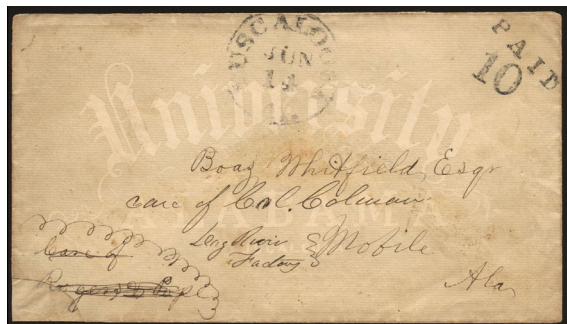 TUSCALOOSA
JUN
14
PAID
10
University
ALABAMA
Boaz Whitfield, Esqr
care of Col. Colman
Mobile
Factory
Ala
Care of